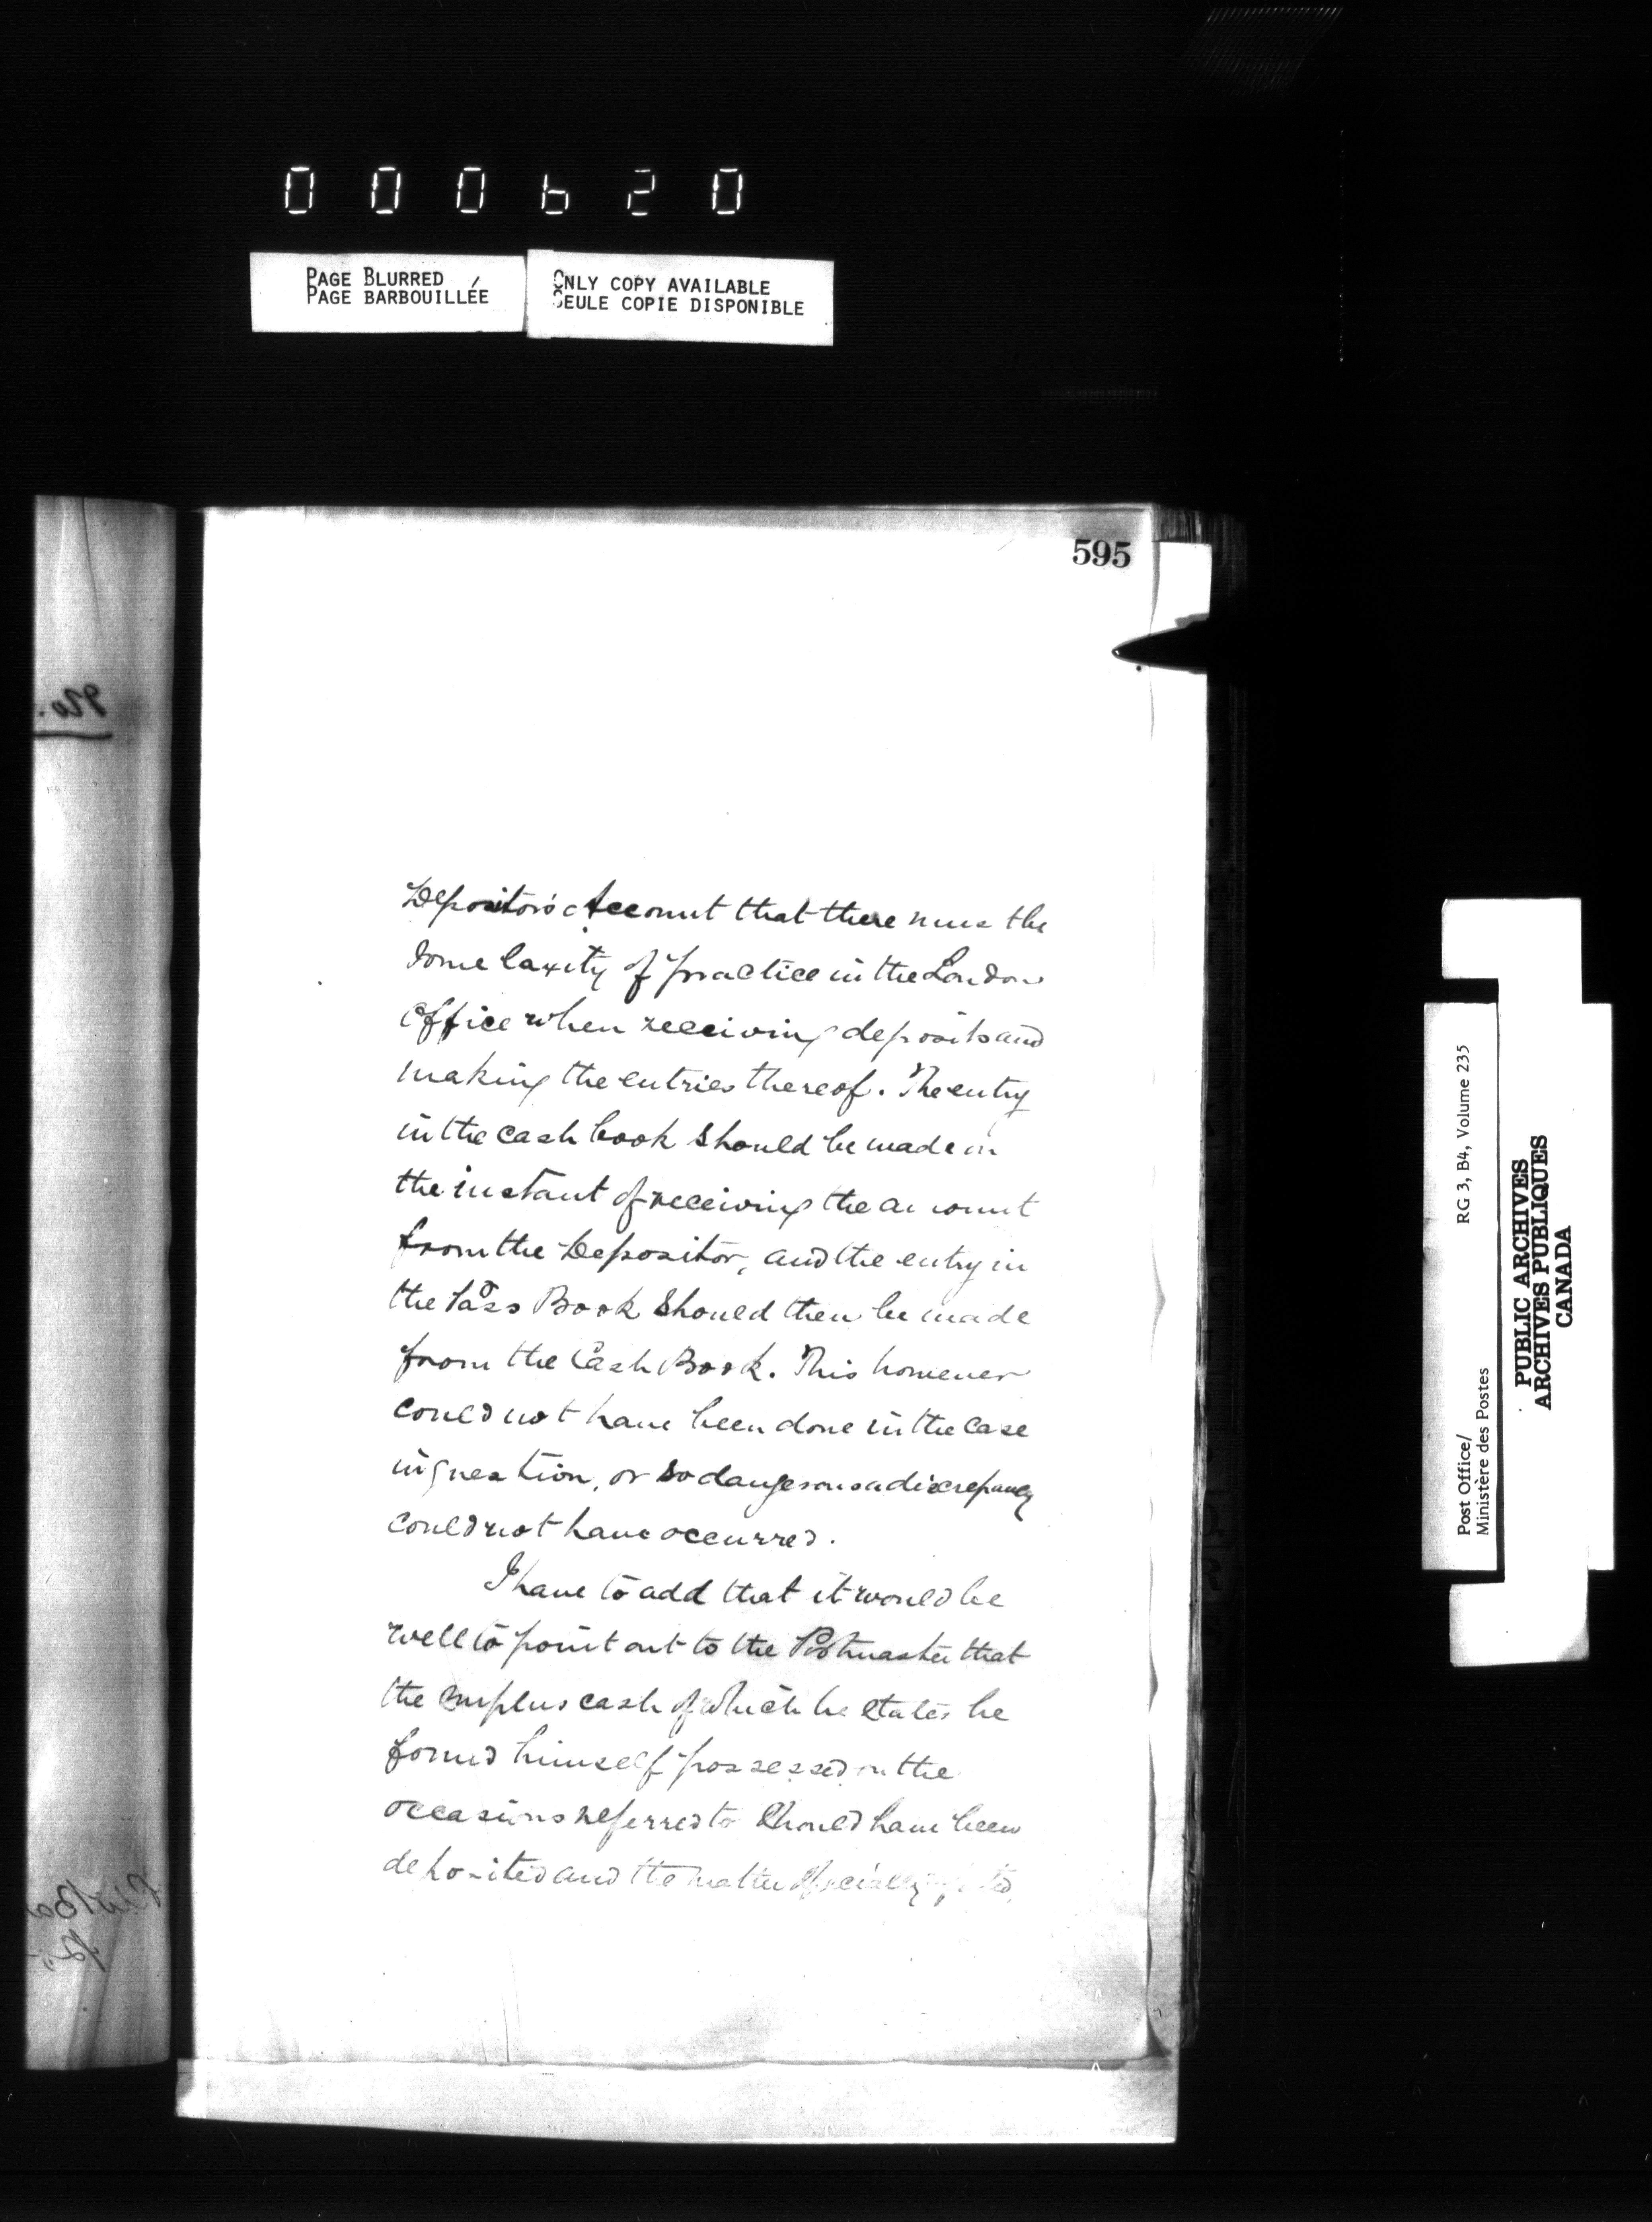 000620
PAGE BLURRED
PAGE BARBOUILLÉE
ONLY COPY AVAILABLE
SEULE COPIE DISPONIBLE
595
Depositor's Account that there must be
some laxity of practice in the London
Office when receiving deposits and
making the entries thereof. The entry
in the cash book should be made on
the instant of receiving the amount
from the Depositor, and the entry in
the Pass Book should then be made
from the Cash Book. This however
could not have been done in the case
in question, or so dangerous a discrepancy
could not have occurred.
I have to add that it would be
well to point out to the Postmaster that
the surplus cash of which he states he
found himself possessed on the
occasions referred to should have been
deposited and the matter specially
Post Office/
Ministère des Postes
RG 3, B4, Volume 235
PUBLIC ARCHIVES
ARCHIVES PUBLIQUES
CANADA